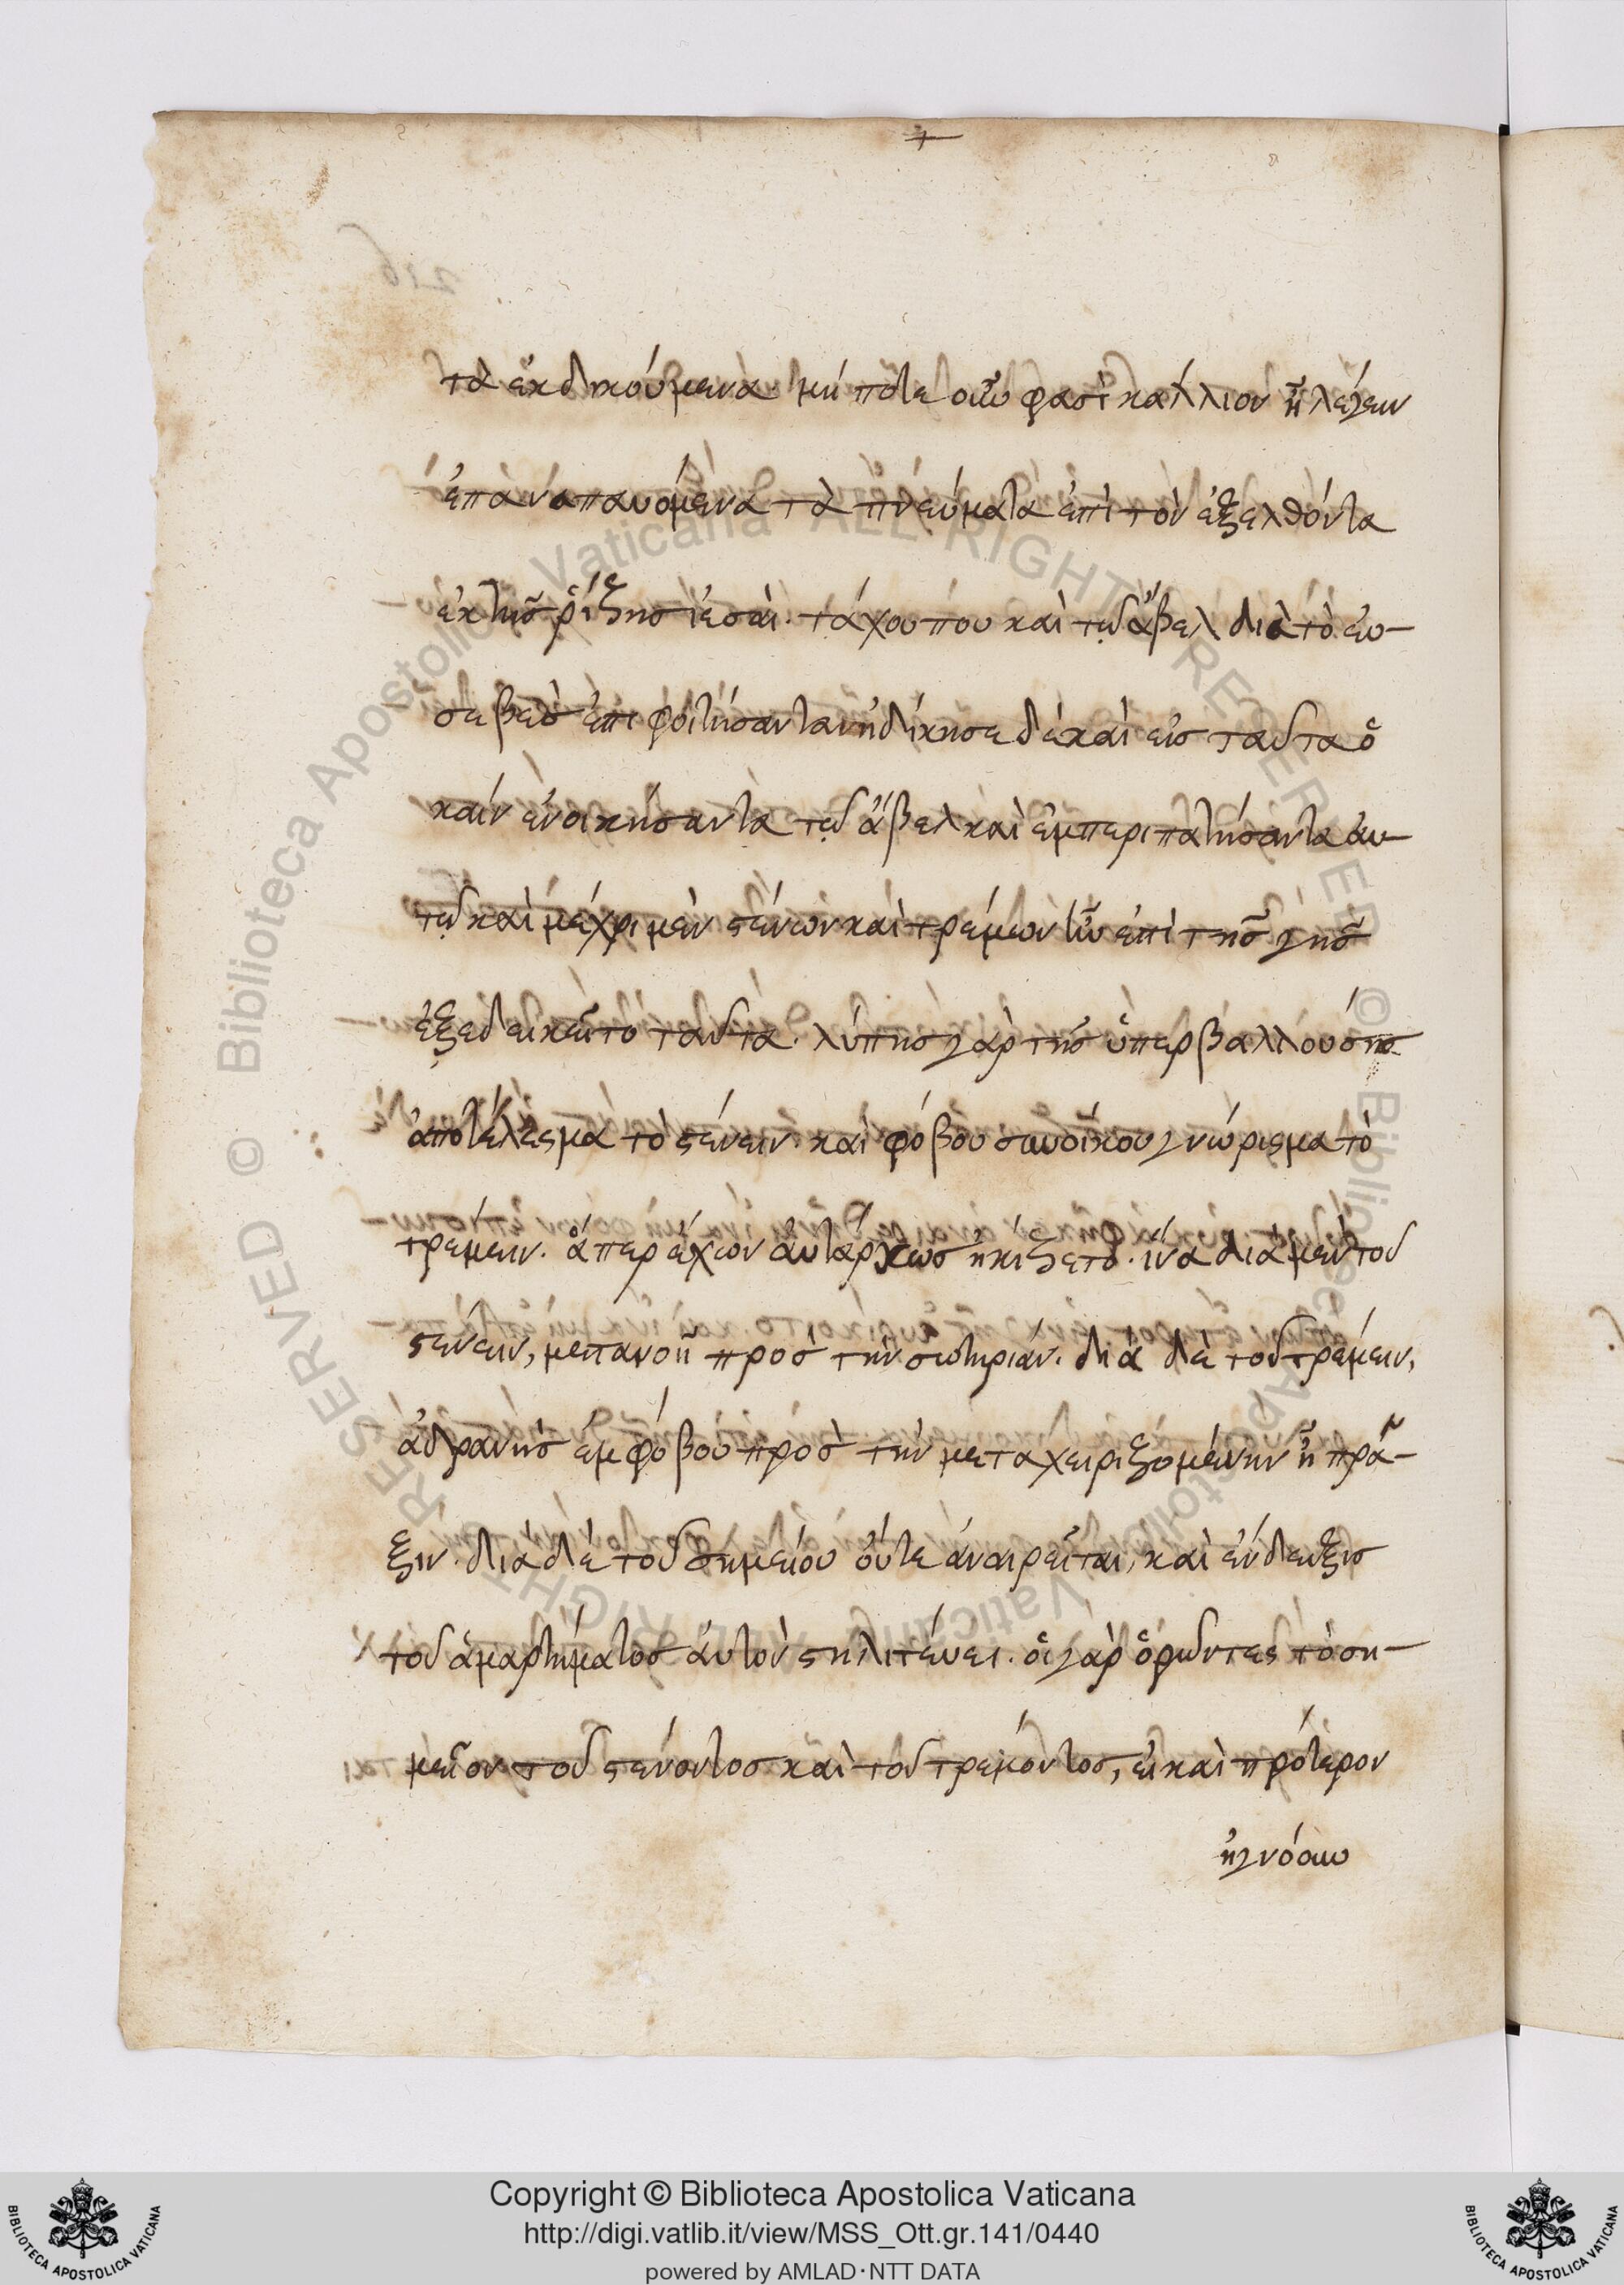 τὰ ἐκδικούμενα. μή ποτε οὖν φασὶ κάλλιον ἢ λέγειν
ἐπαναπαυόμενα τὰ πνεύματα ἐπὶ τὸν ἐξελθόντα
ἐκ τῆς ῥίζης ἰεσαὶ. τάχου που καὶ τῷ ἄβελ διὰ τὸ εὐ-
σεβὲς ἐπιφοιτήσαντα. ἠδίκησε δὲ καὶ εἰς ταῦτα ὁ
καΐν ἐνοικήσαντα τῷ ἄβελ καὶ ἐμπεριπατήσαντα αὐ-
τῷ καὶ μέχρι μὲν στένων καὶ τρέμων ἦν ἐπὶ τῆς γῆς
ἐξεδικεῖτο ταῦτα. λύπης γὰρ τῆς ὑπερβαλλούσης
ἀποτέλεσμα τὸ στένειν. καὶ φόβου συνοίκου γνώρισμα τὸ
τρέμειν. ἅπερ ἔχων αὐτάρκως ᾐκίζετο. ἵνα διὰ μὲν τοῦ
στένειν, μετανοῇ πρὸς τὴν σωτηρίαν. διὰ δὲ τοῦ τρέμειν,
ἀδρανὴς ἐμφόβου πρὸς τὴν μεταχειριζομένην ἢ πρᾶ-
ξιν. διὰ δὲ τοῦ σημείου οὔτε ἀναιρεῖται, καὶ ἔνδειξις
τοῦ ἁμαρτήματος αὐτὸν στηλιτεύει. οἱ γὰρ ὁρῶντες τὸ ση-
μεῖον τοῦ στένοντος καὶ τοῦ τρέμοντος, εἰ καὶ πρότερον
ἠγνόουν
Copyright © Biblioteca Apostolica Vaticana
http://digi.vatlib.it/view/MSS_Ott.gr.141/0440
powered by AMLAD·NTT DATA